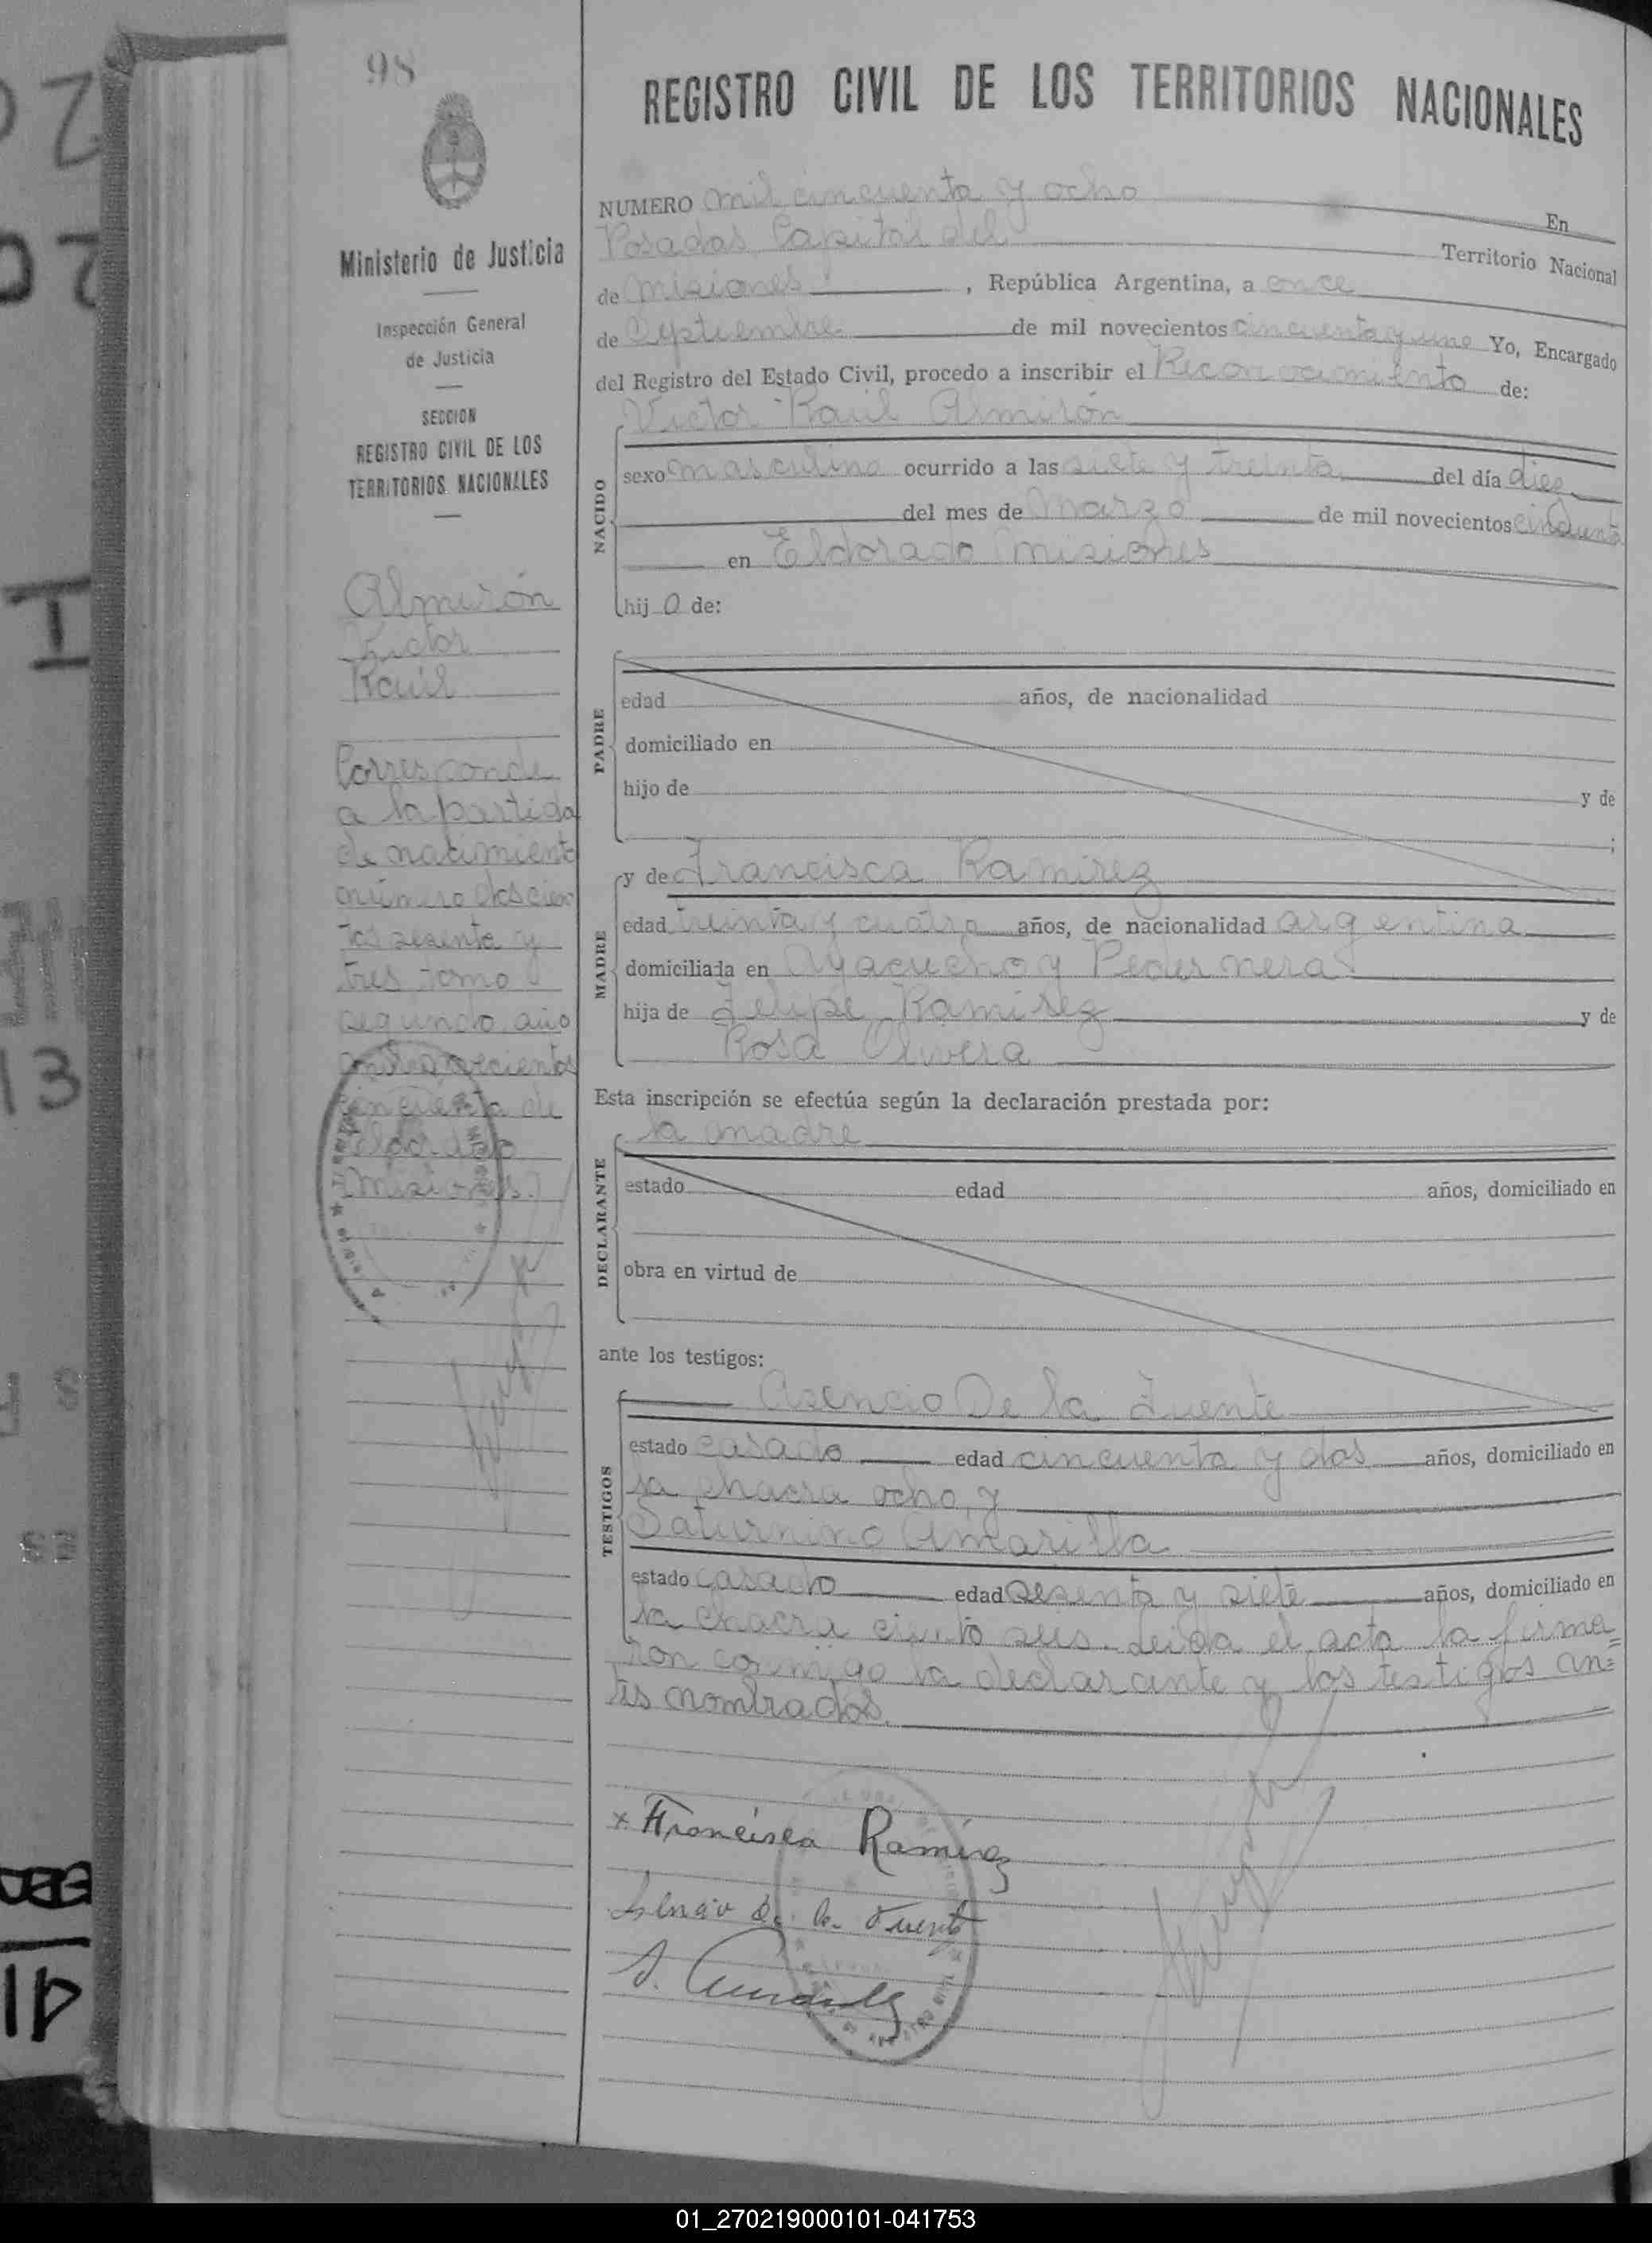 98
REGISTRO CIVIL DE LOS TERRITORIOS NACIONALES
Ministerio de Justicia
Inspección General
de Justicia
SECCION
REGISTRO CIVIL DE LOS
TERRITORIOS NACIONALES
Almirón
Victor
Raúl
Corresponde
a la partida
de nacimiento
número doscien
tos sesenta y
tres tomo
segundo, año
cincuenta de
Eldorado
Misiones.
NUMERO mil cincuenta y ocho En
Posadas Capital del Territorio Nacional
de Misiones, República Argentina, a once
de Septiembre de mil novecientos cincuenta y uno Yo, Encargado
del Registro del Estado Civil, procedo a inscribir el Reconocimiento de:
Victor Raúl Almirón
NACIDO
sexo masculino ocurrido a las siete y treinta del día diez
del mes de Marzo de mil novecientos cincuenta
en Eldorado Misiones
hijo de:
PADRE
edad años, de nacionalidad
domiciliado en
hijo de y de
;
MADRE
y de Francisca Ramirez
edad treinta y cuatro años, de nacionalidad argentina
domiciliada en Ayacucho y Pedernera
hija de Felipe Ramirez y de
Rosa Olivera
Esta inscripción se efectúa según la declaración prestada por:
la madre
DECLARANTE
estado edad años, domiciliado en
obra en virtud de
ante los testigos:
Asencio De la Fuente
TESTIGOS
estado casado edad cincuenta y dos años, domiciliado en
la chacra ocho, y
Saturnino Amarilla
estado casado edad sesenta y siete años, domiciliado en
la chacra ciento seis. Leida el acta la firma=
ron conmigo la declarante y los testigos an=
tes nombrados.
x Francisca Ramírez
De la Fuente
S. Amarilla
01_270219000101-041753